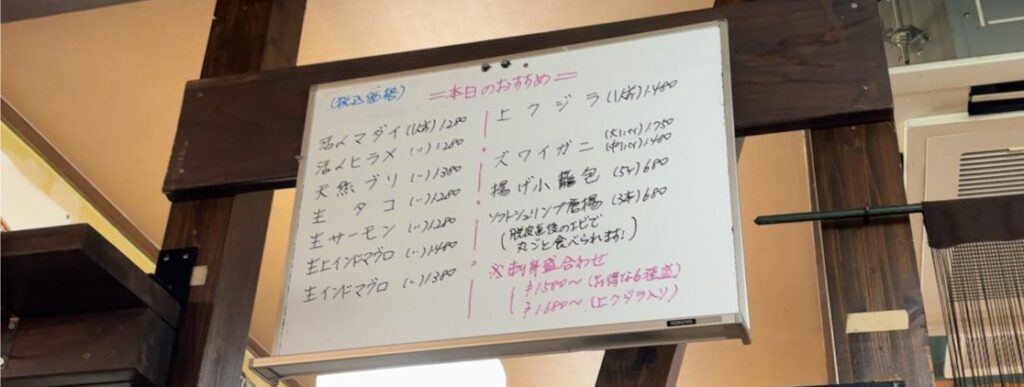 (税込価格)
＝本日のおすすめ＝
活〆マダイ(1人前)1280
活〆ヒラメ(〃)1280
天然ブリ(〃)1380
生タコ(〃)1280
生サーモン(〃)1280
生上インドマグロ(〃)1480
生インドマグロ(〃)1380
上クジラ(1人前)1480
ズワイガニ(大1パイ)1750
(中1パイ)1480
揚げ小籠包(5ヶ)680
ソフトシュリンプ唐揚(3本)680
(脱皮直後のエビで
丸ごと食べられます!)
※刺身盛合わせ
(¥1,580～(お得な6種盛)
¥1,680～(上クジラ入り)